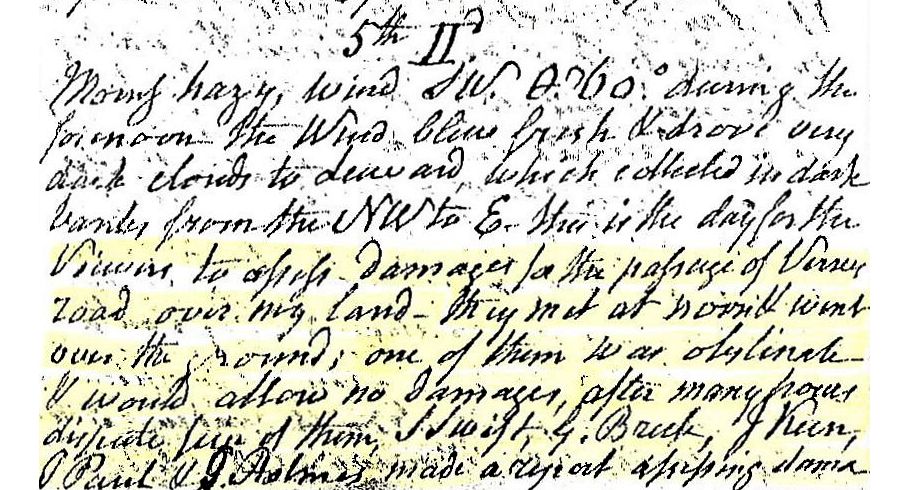 5th II^d
Morng hazy, wind SW. 60.° during the
forenoon the Wind blew fresh & drove very
dark clouds to leeward, which collected in dark
banks from the NW to E - this is the day for the
Viewers to assess damages for the passage of
road over my land - they met at noon & went
over the ground; one of them was obstinate
& would allow no damages, after many hours
dispute four of them, J Swift, G. Breck, J Keen,
J Paul & J. made a report assessing dama